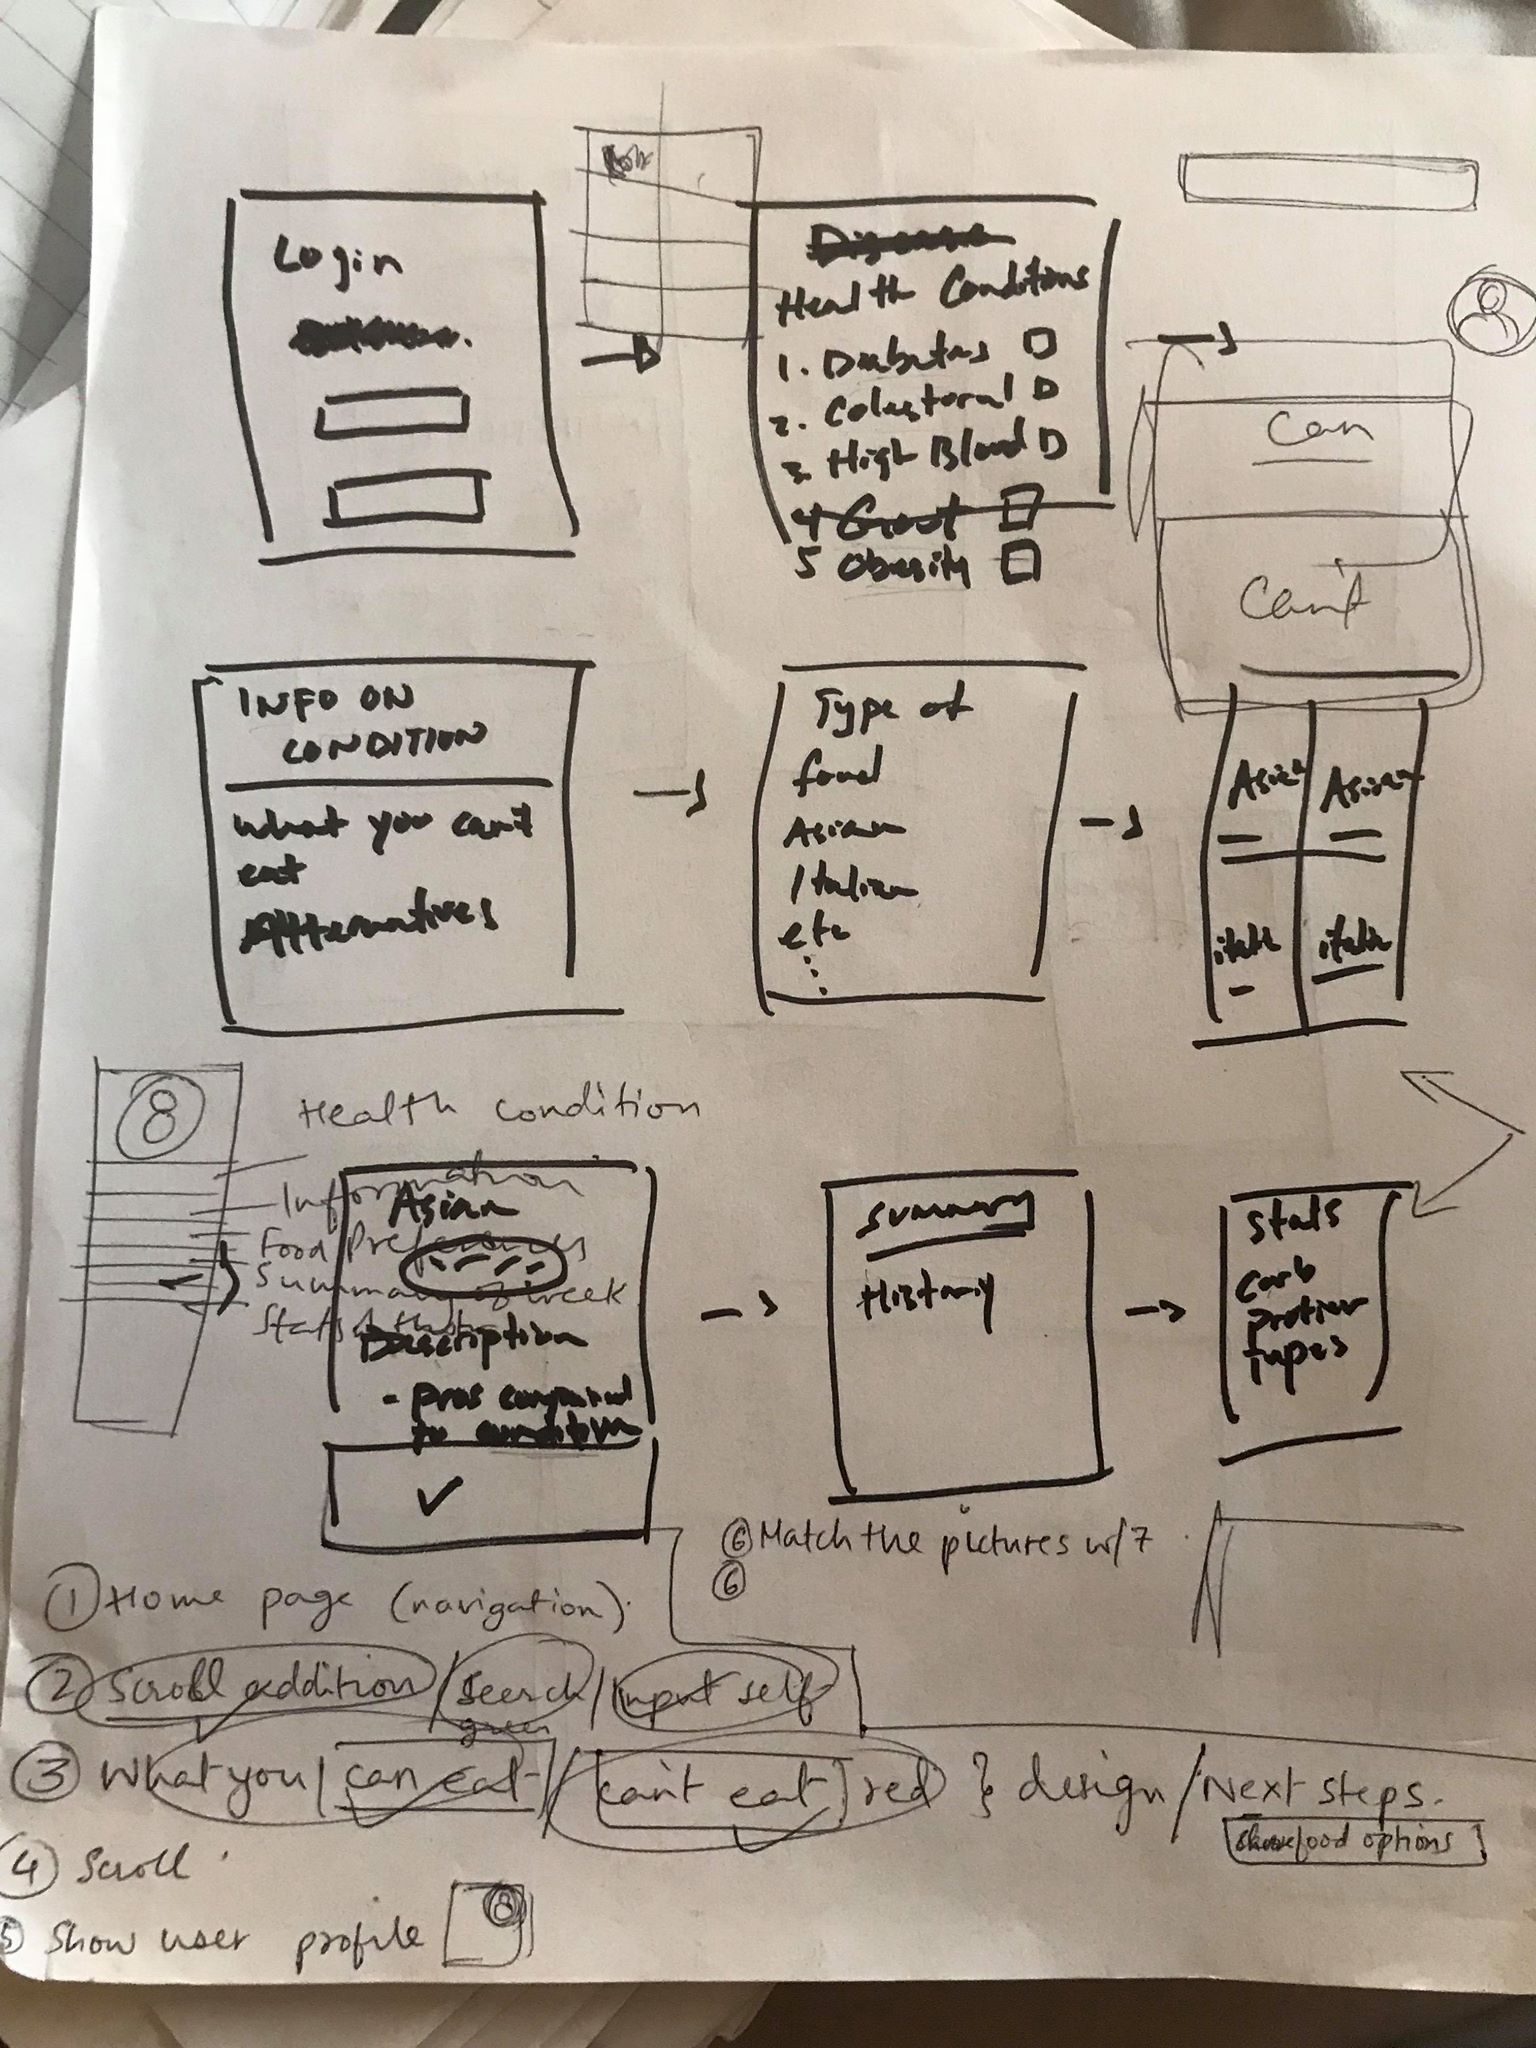 Login
Disease
Health Conditions
1. Diabetes
2. Colestoral
3. High Blood
4 Gout
5 Obesity
Can
Can't
INFO ON
CONDITION
What you can't
eat
Alternatives
Type of
food
Asian
Italian
etc
Asian Asian
italia
Health condition
Information
Food Preferences
Summary of week
Stats
Asian
Description
- pros compared
to condition
Summary
History
Stats
carb
types
⑥ Match the pictures w/7
⑥
① Home page (navigation).
② Scroll addition / Search / input self
green
③ What you / can eat / can't eat] red } design / Next steps.
food options
④ Scroll
⑤ Show user profile